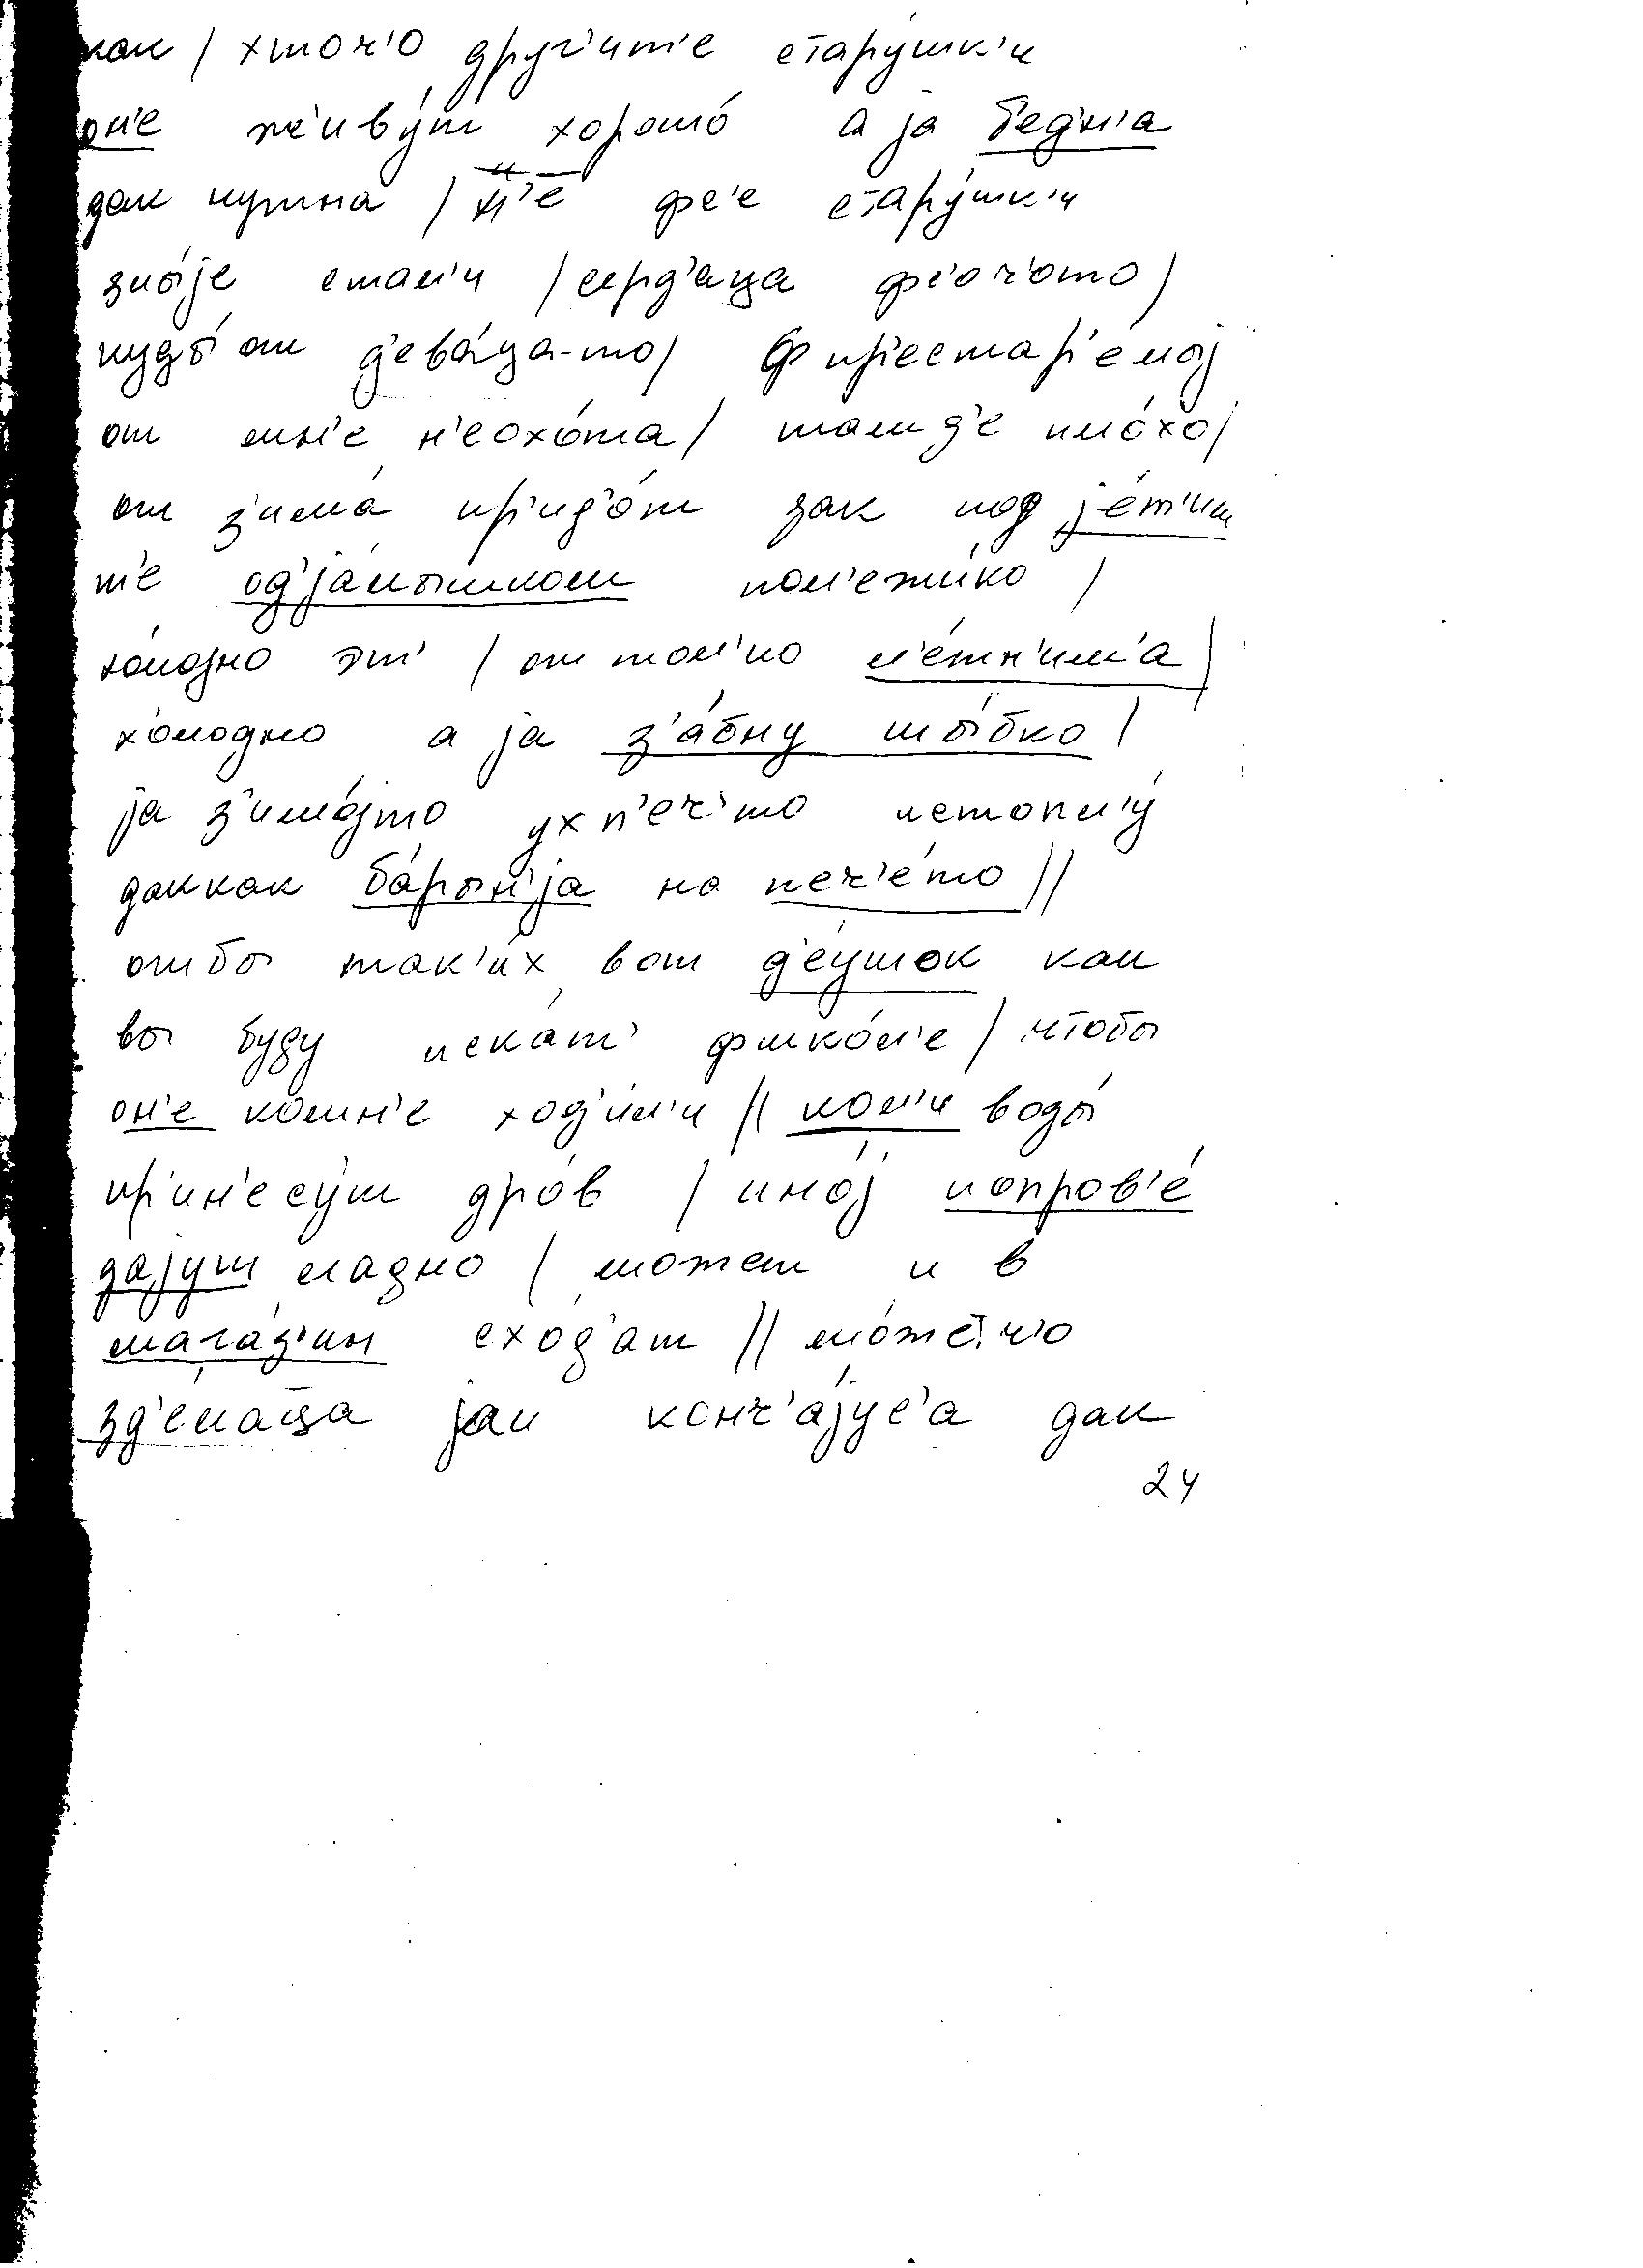 как / хточ'о друг'ит'е стару́шк'и
он'е ж'иву́т хорошо́ а jа б'е́дн'а
дак нужна / н'е фс'е стару́шк'и
злы́jе стал'и / серд'аца фс'оч'ото /
куды́ от д'ева́ца-то / ф пр'естар'е́лоj
от мн'е н'еохо́та / там д'е пло́хо /
от з'има́ пр'ид'о́т зак под jе́т'им
т'е од'jа́лышком пол'ежи́ко /
хо́лодно эт' / от тол'ко л'е́тн'им'а /
хо́лодно а jа з'а́бну шы́бко /
jа з'имо́jто ух п'еч'то истопл'у́
даккак ба́рын'jа на печ'е́то //
отбы так'и́х вот д'е́ушок как
вы буду иска́т' фшко́л'е / чтобы
он'е комн'е ход'и́л'и // кол'и воды́
пр'ин'есу́т дро́в / ино́j попров'е́
даjут ладно / может и в
магаз'ин сход'ат // мо́жет ч'о
зд'е́лаца jак конч'а́jус'а дак
24